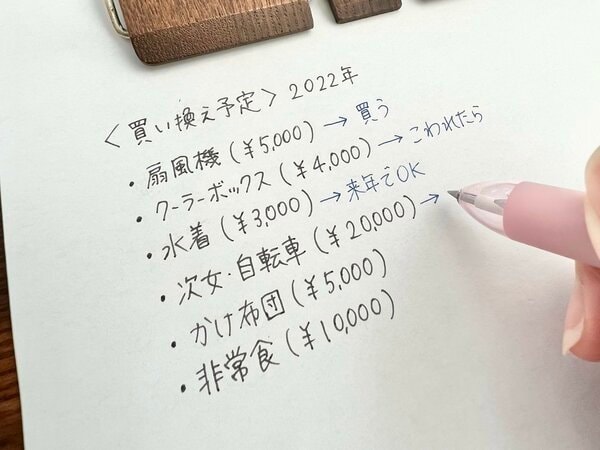 〈買い換え予定〉2022年
・扇風機(¥5,000)→買う
・クーラーボックス(¥4,000)→こわれたら
・水着(¥3,000)→来年でOK
・次女・自転車(¥20,000)→
・かけ布団(¥5,000)
・非常食(¥10,000)